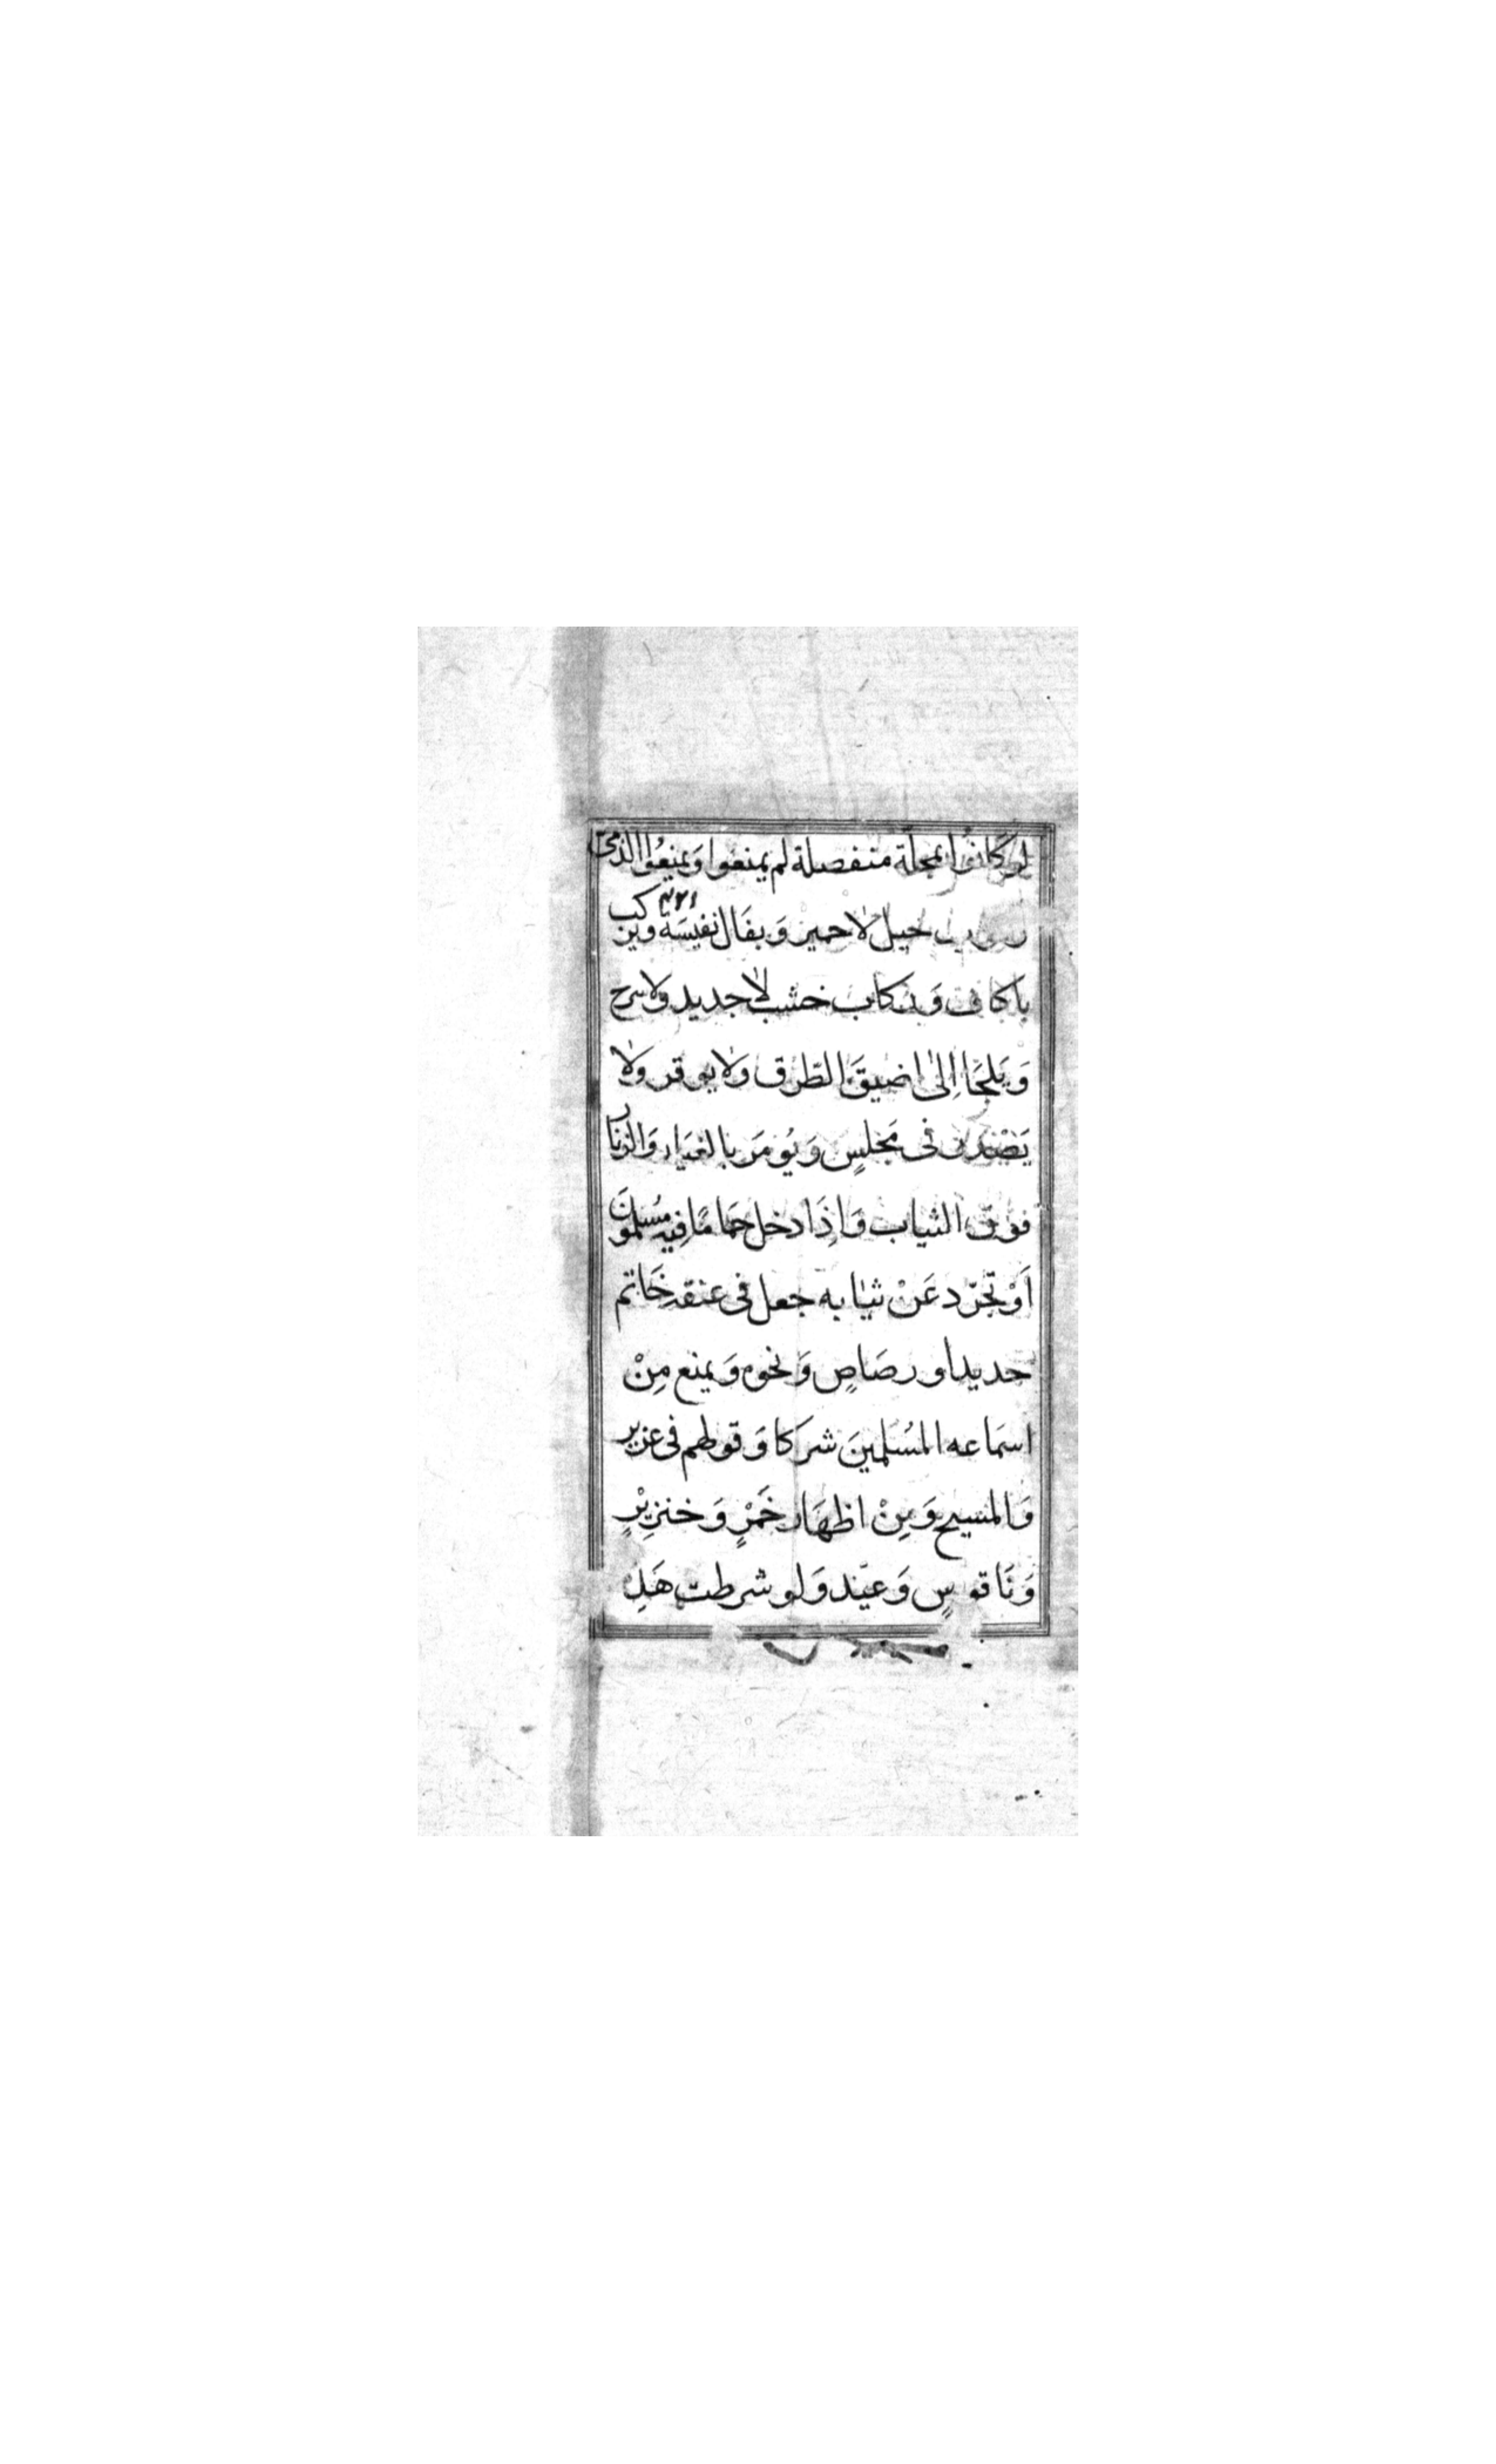 لو كانوا بمحلّة منفصلة لم يمنعوا وَيمنعُوا الذمىّ
خيل لا حمير وَبغَال نفيسَة ويركب
باكاف وَركاب خشب لا جديد ولا سرج
وَيلجَا اِلىٰ اضيقَ الطّرق ولا يوقر ولا
يَصْدر فى مَجلسٍ وَيُومَر بالغيَار وَالزنار
فوقَ الثياب وَاِذَا دخل حمامًا فيه مُسلموُنَ
اَوْ تجرّد عَنْ ثيابه جعل فى عنقه خَاتم
حديد او رصَاصٍ وَنحوه وَيمنع مِنْ
اسمَاعه المسُلمينَ شركا وَقولهم فى عزير
وَالمسيح وَمِنْ اظهَار خَمْرٍ وَخنزِيْرٍ
وَنَاقوسٍ وَعيّد وَلو شرطت هَذِ